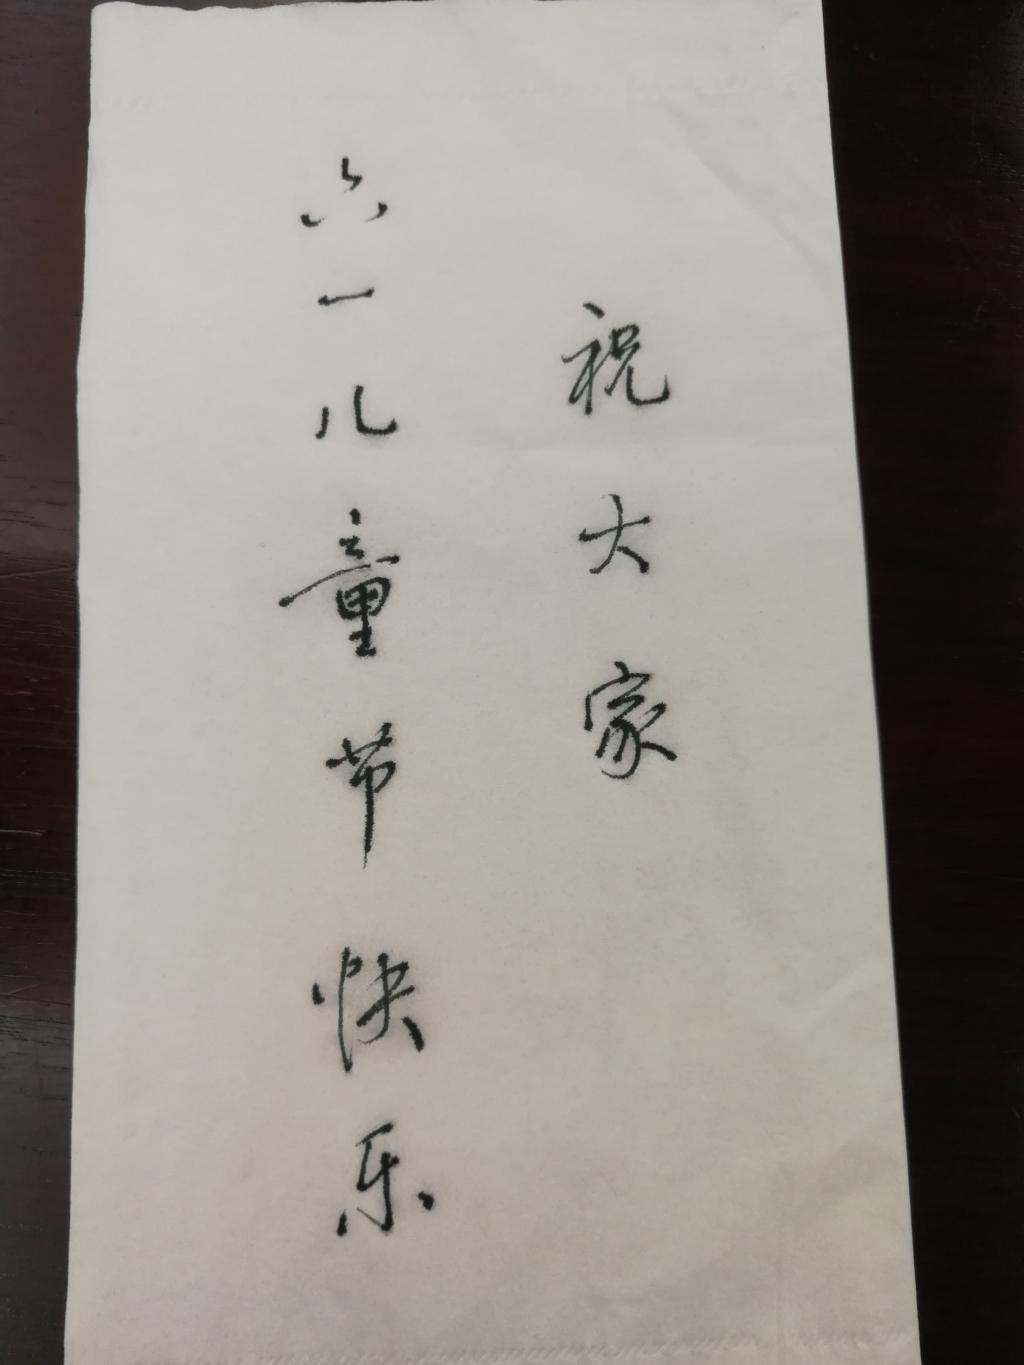 祝大家
六一儿童节快乐